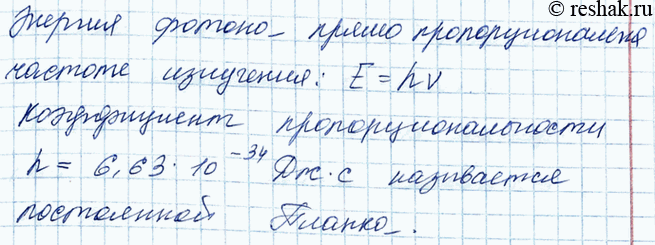 © reshak.ru
Энергия фотона прямо пропорциональна
частоте излучения: E = hν
Коэффициент пропорциональности
h = 6,63 · 10⁻³⁴ Дж · с называется
постоянной Планка.